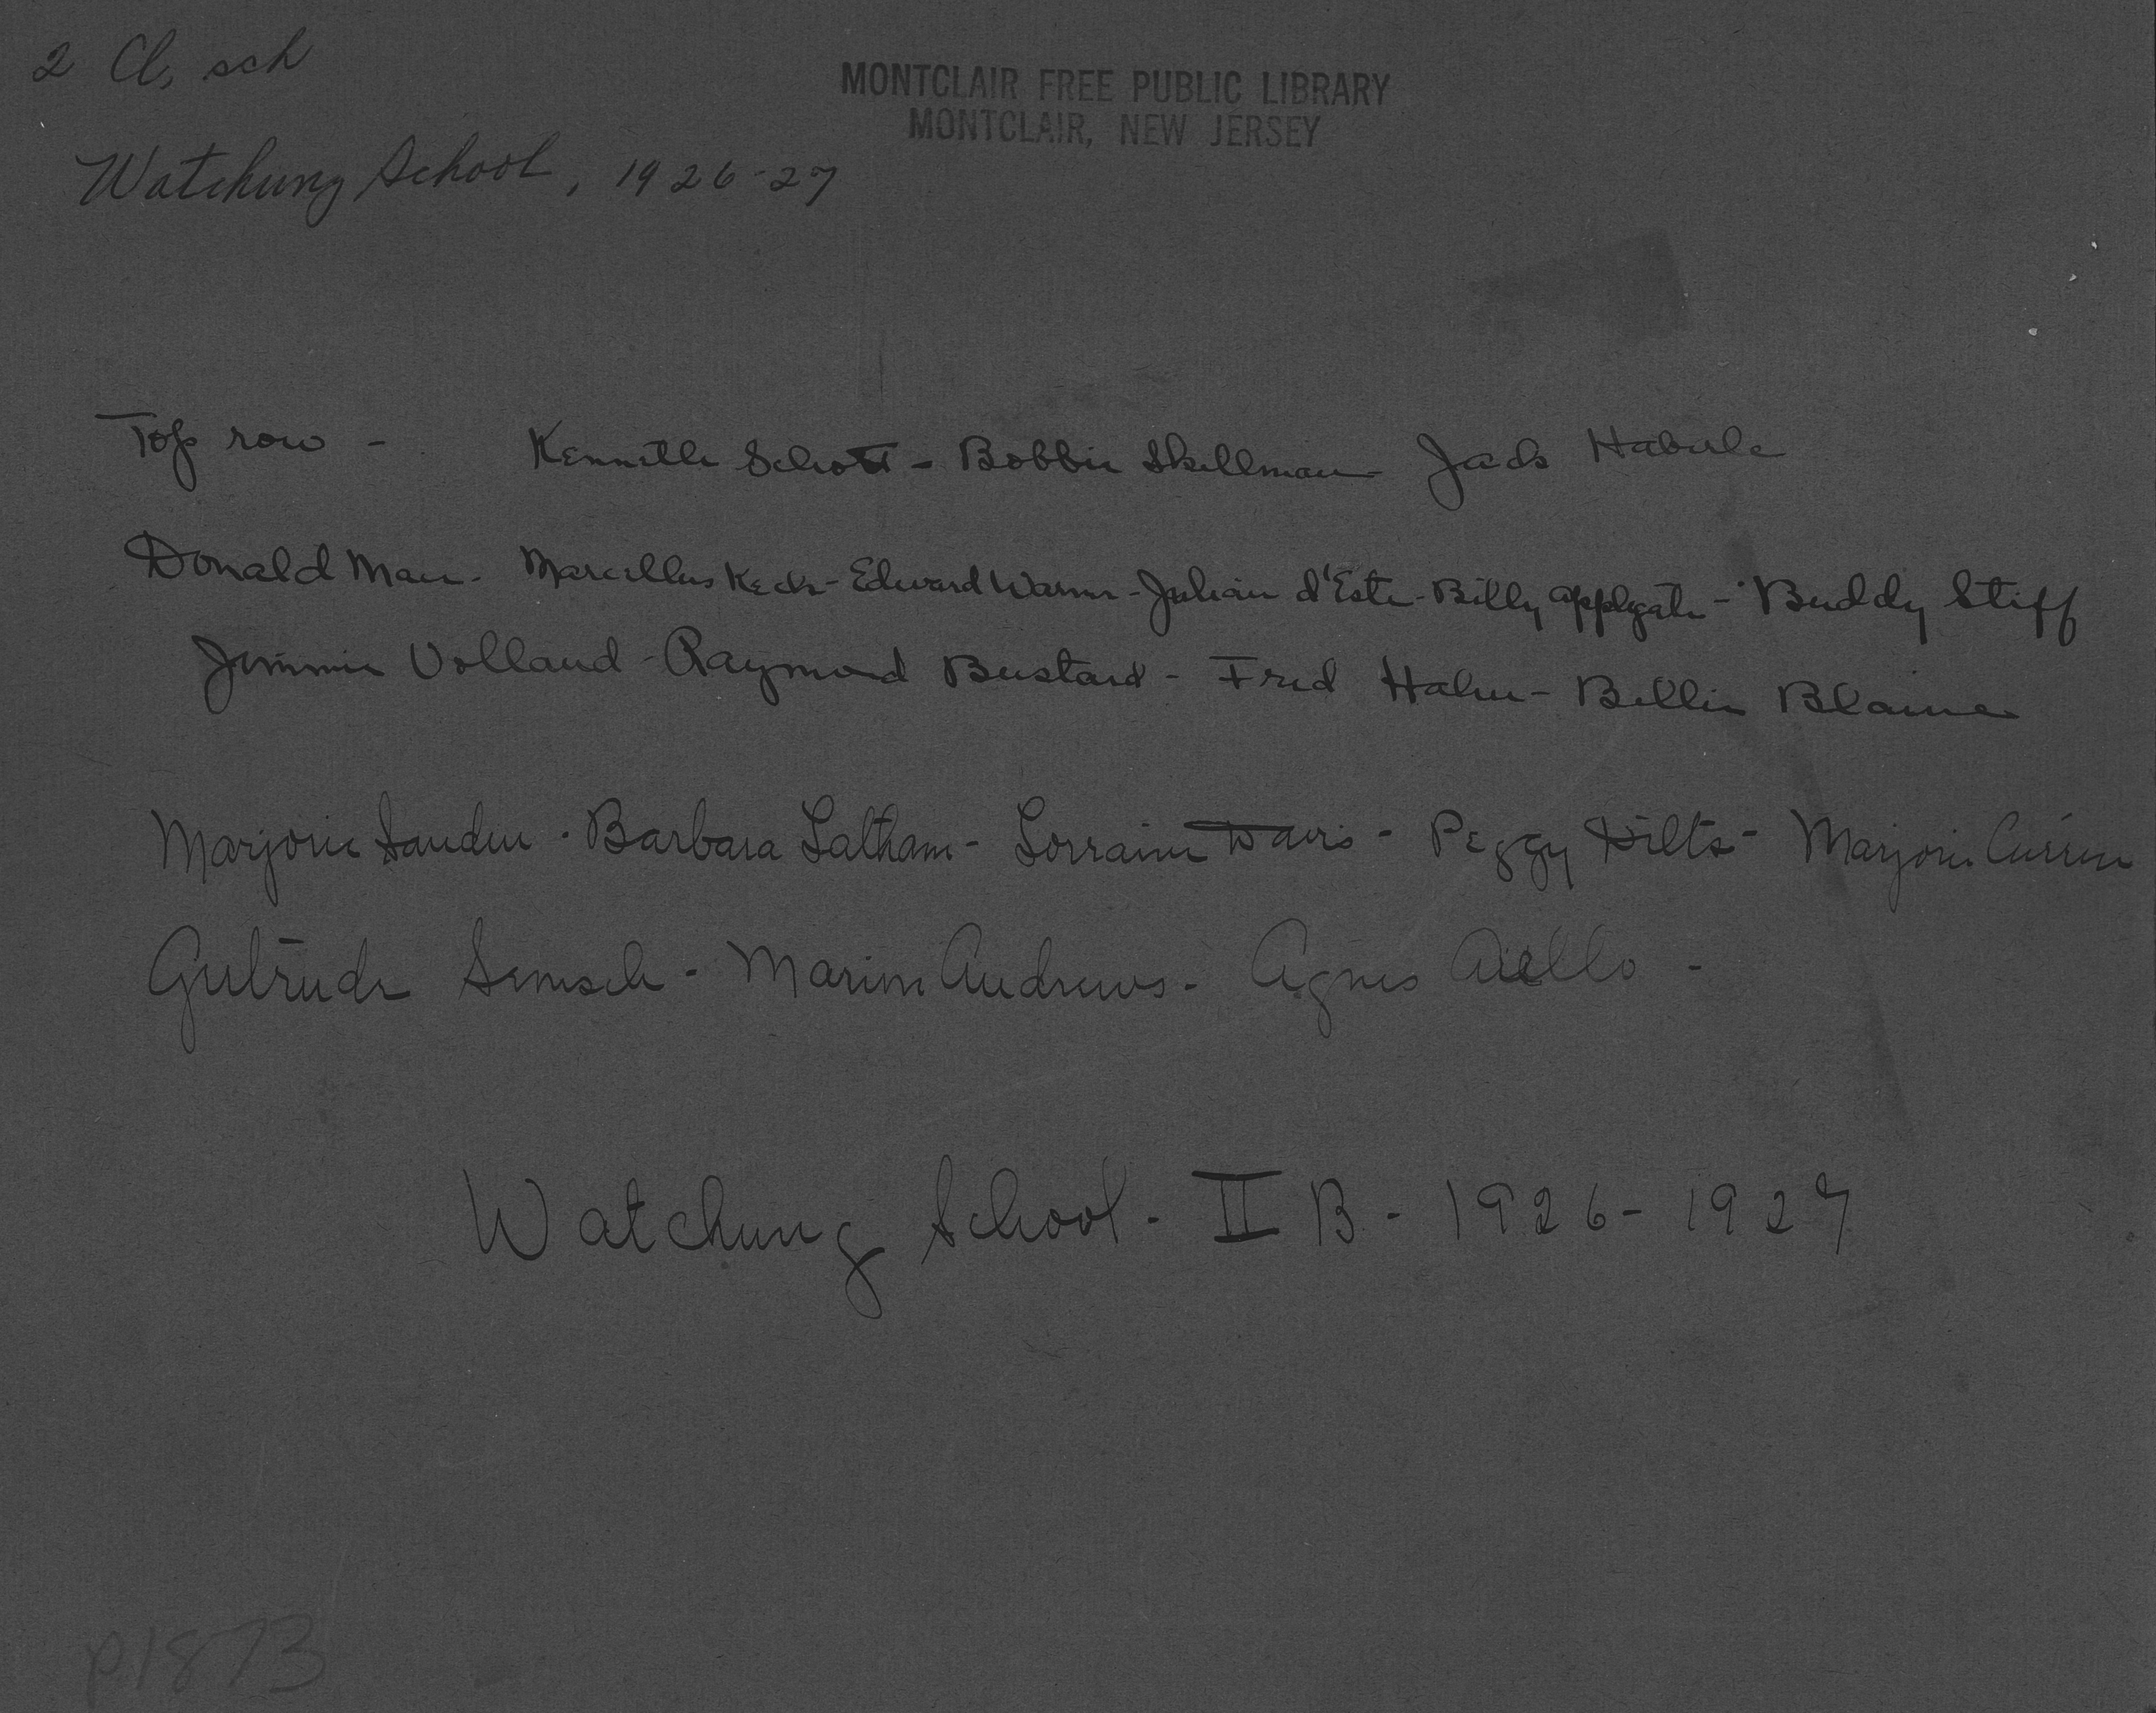 2 Cl, sch
MONTCLAIR FREE PUBLIC LIBRARY
MONTCLAIR, NEW JERSEY
Watchung School, 1926-27
Top row - Kenneth Schott - Bobbie Skellman - Jack Haberle
Donald Marr - Marcellus Keck - Edward Warner - Julian d'Este - Billy Applegate - Buddy Stiff
Jimmie Volland - Raymond Bustard - Fred Hahn - Billie Blaine
Marjorie - Barbara Latham - Lorraine Davis - Peggy Dilts - Marjorie
Gertrude - Andrews - Agnes Aiello -
Watchung School - II B - 1926 - 1927
p1873